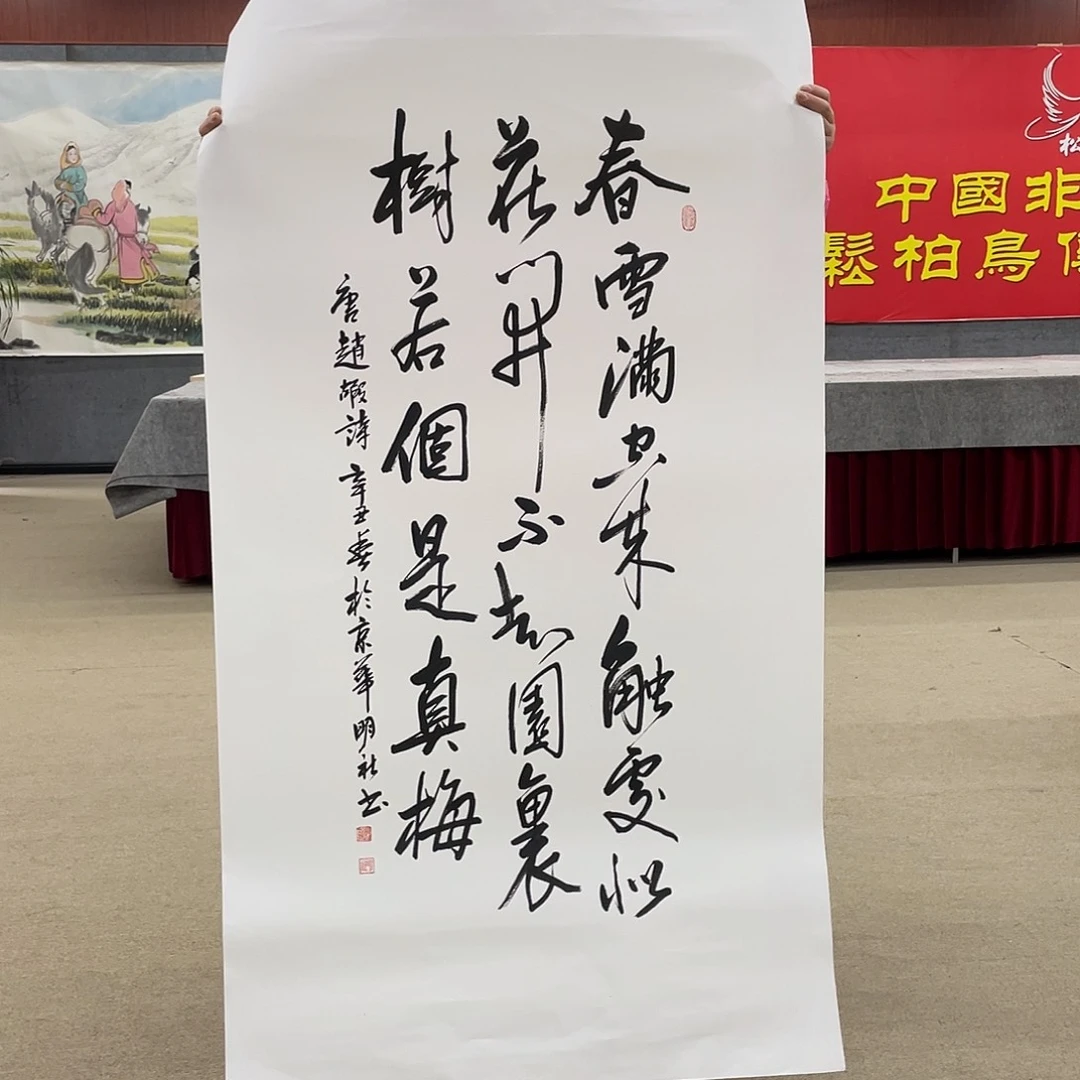 春雪滿空來触處似
花開不知園裏
樹若個是真梅
唐趙嘏詩 辛丑春於京華 明社书
松
中國非
鬆柏鳥